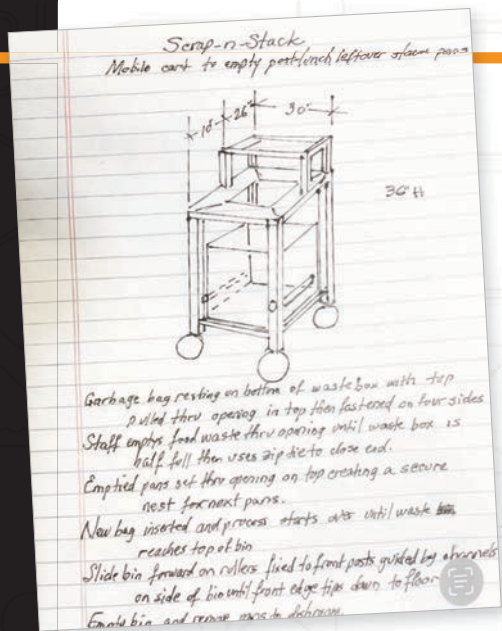 Scrap-n-Stack
Mobile cart to empty post lunch leftover steam pans
18" 26" 30"
36" H
Garbage bag resting on bottom of waste box with top
pulled thru opening in top then fastened on four sides
Staff emptys food waste thru opening until waste box is
half full then uses zip tie to close end.
Emptied pans set thru opening on top creating a secure
nest for next pans.
New bag inserted and process starts over until waste
reaches top of bin
Slide bin forward on rullers fixed to front posts guided by channels
on side of bin until front edge tips down to floor
Empty bin and remove pans to dishroom